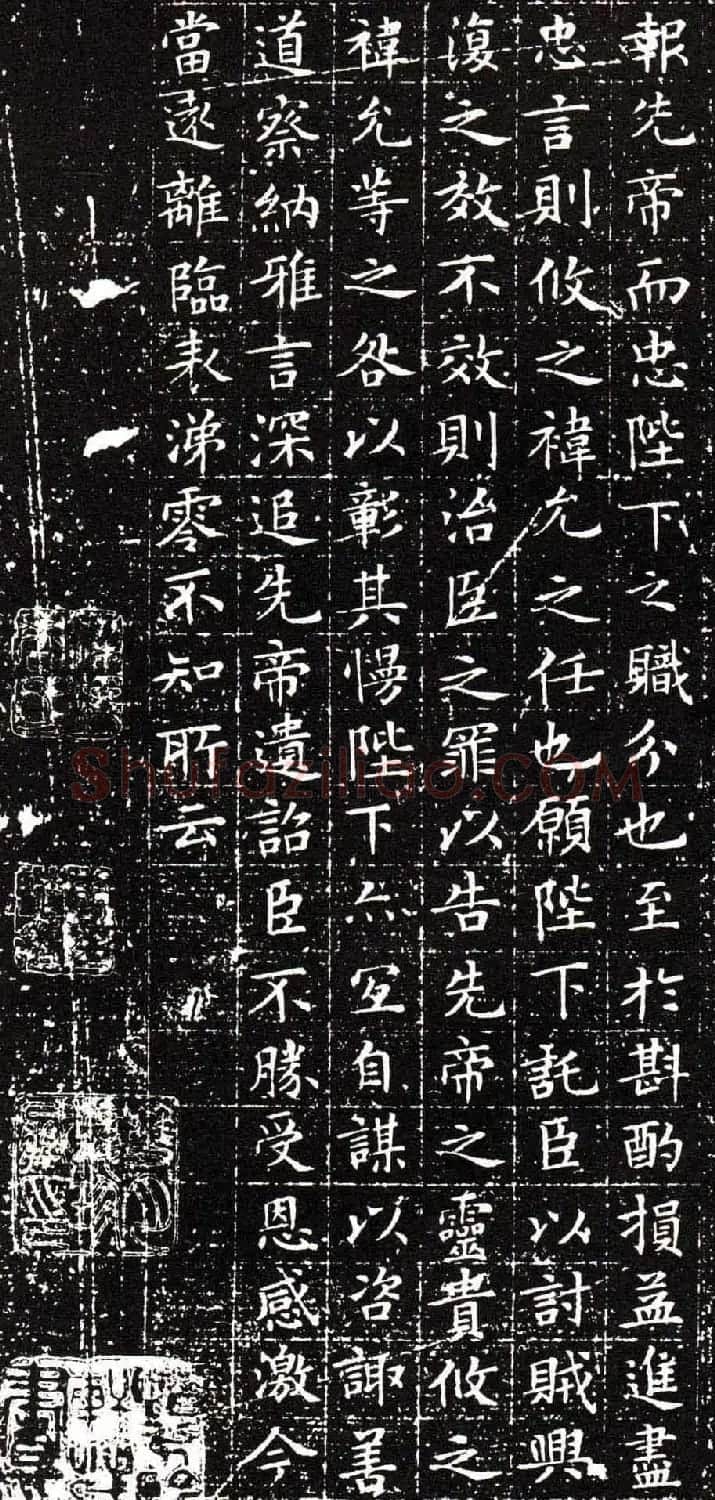 報先帝而忠陛下之職分也至於斟酌損益進盡
忠言則攸之禕允之任也願陛下託臣以討賊興
復之效不效則治臣之罪以告先帝之靈責攸之
禕允等之咎以彰其慢陛下亦宜自謀以咨諏善
道察納雅言深追先帝遺詔臣不勝受恩感激今
當遠離臨表涕零不知所云
Shufaziliao.COM